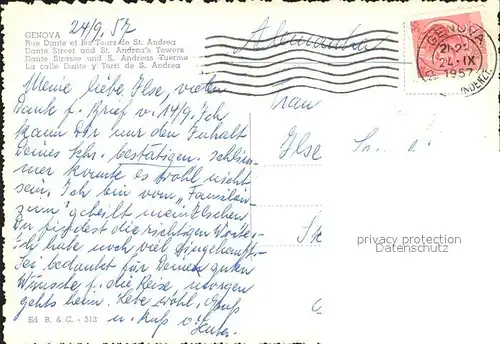 24/9.57
GENOVA
Rue Dante et les Tours de St. Andrea
Dante Street and St. Andrea's Towers
Dante Strasse und S. Andreas Tuerme
La calle Dante y Torri de S. Andrea
GENOVA
24·IX
1957
Meine liebe Ilse, vielen
Dank f. Brief v. 14/9. Ich
kann Dir nur den Inhalt
Deines Schr. bestätigen. schlim-
mer konnte es wohl nicht
sein. Ich bin vom "Familien-
geheilt mein Ilschen
Du findest die richtigen Worte.
Ich habe noch viel
Sei bedankt für Deine guten
Wünsche f. die Reise, morgen
gehts heim. Lebe wohl, Gruß
u. Kuß v.
Frau
Ilse
privacy protection
Datenschutz
Ed B. & C. - 512